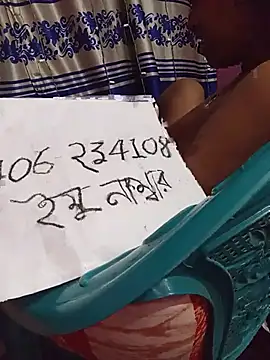 106 ২34108
ইমু নাম্বার